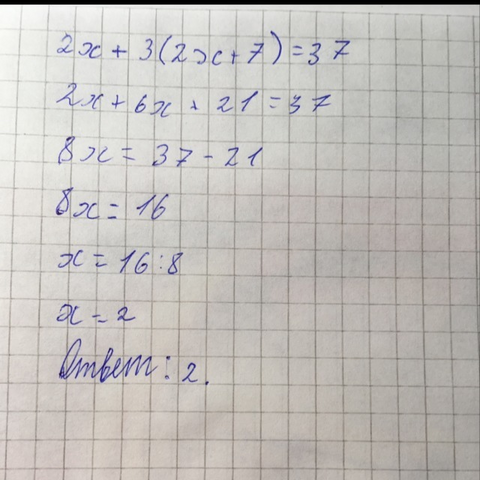 2x + 3(2x+7)=37
2x + 6x + 21 = 37
8x = 37 - 21
8x = 16
x = 16 : 8
x = 2
Ответ: 2.